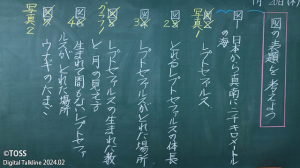 図の表題を考えよう
図 日本から真南に二千キロメートル
の海
写真 レプトセファルス
図2 とれたレプトセファルスの体長
図3 レプトセファルスがとれた場所
レプトセファルスの生まれた数
と月の見え方
図 生まれて間もないレプトセファ
ルスがとれた場所
写真2 ウナギのたまご
©TOSS
Digital Talkline 2024.02